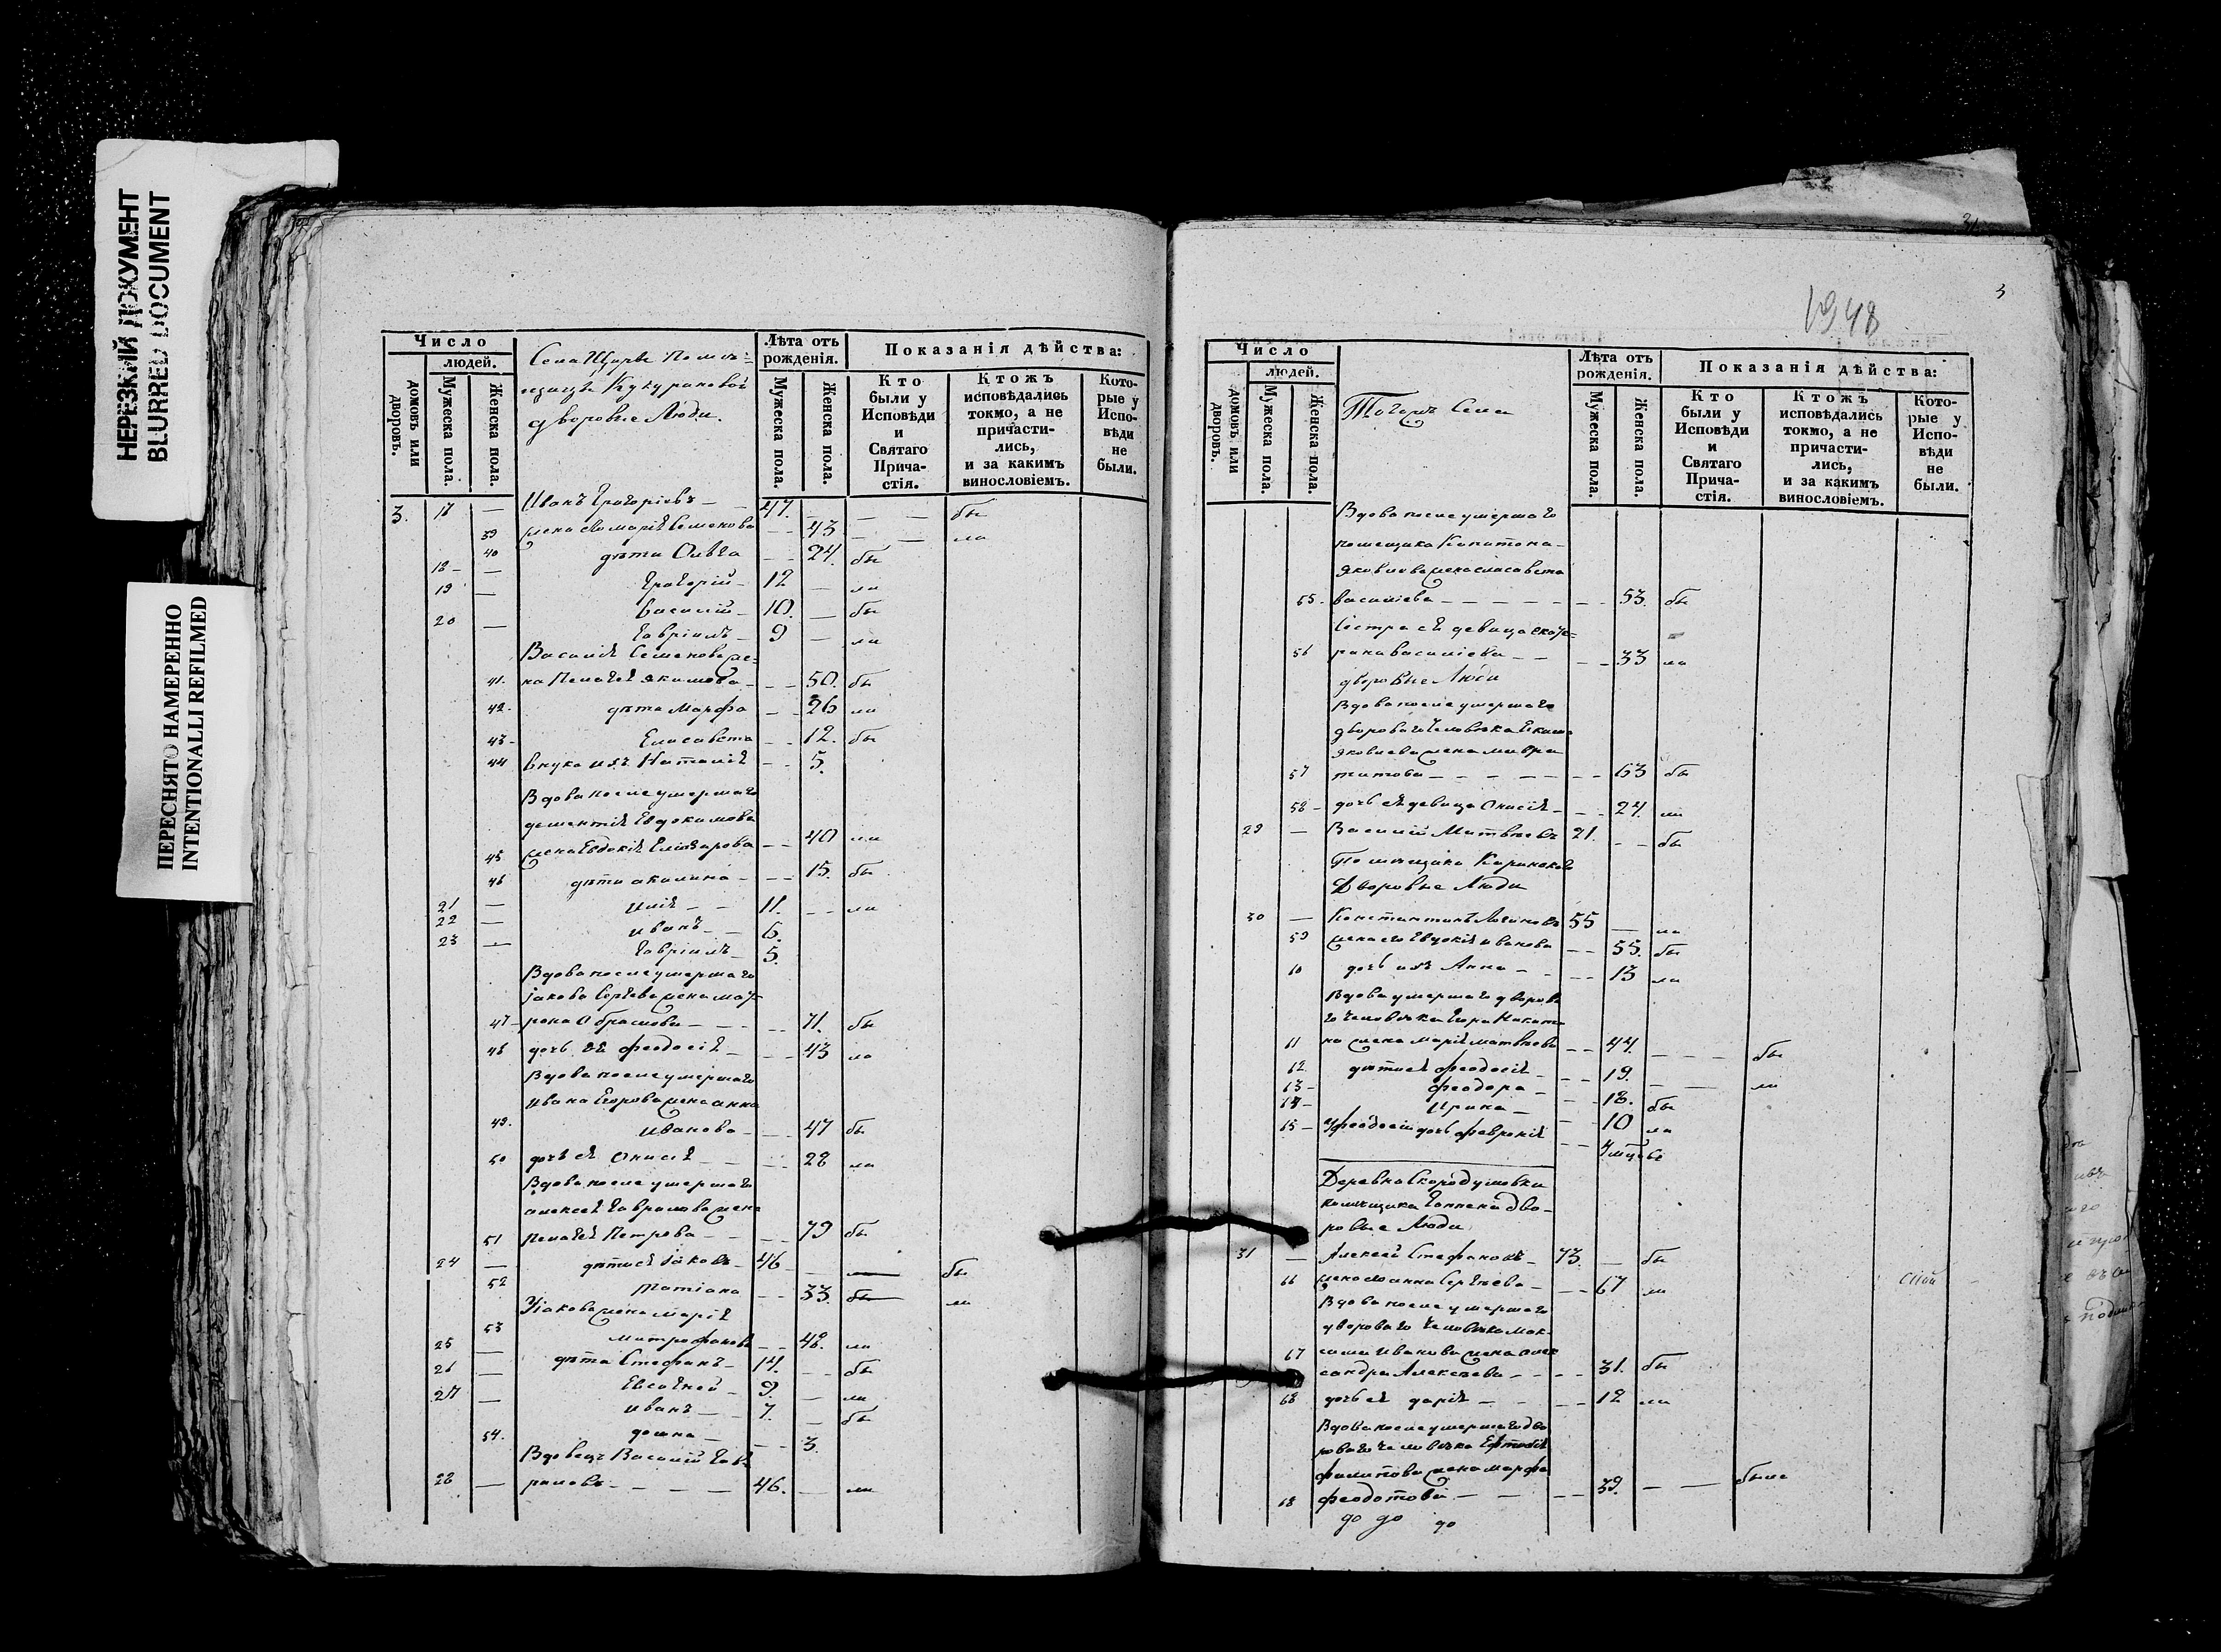 НЕРЕЗКИЙ ДОКУМЕНТ
BLURRED DOCUMENT
ПЕРЕСНЯТО НАМЕРЕННО
INTENTIONALLI REFILMED
Число
людей.
домовъ или дворовъ.
Мужеска пола.
Женска пола.
Села Щучье помѣ=
щицы
дворовые Люди.
Лѣта отъ рожденія.
Мужеска пола.
Женска пола.
Показанія дѣйства:
Кто были у Исповѣди и Святаго Прича-стія.
Ктожъ исповѣдались токмо, а не причасти-лись, и за какимъ винословіемъ.
Кото-рые у Испо-вѣди не были.
3. 17 — Иванъ Григорьевъ — 47. — — бы
39 жена его марія Семенова — 43 — — ли
40 дѣти Ольга — 24. бы
18 — Григорій — 12 — ли
19 — Василій — 10. — бы
20 — Гавріилъ — 9 — ли
Василія Семенова же=
41. на Пелагея Акимова — 50. бы
42. дѣти Марфа — 26 ли
43 — Елисавета — 12. бы
44 внука ихъ Наталія — 5.
Вдова после умершаго
дементія Евдокимова
45 жена Евдокія Елизарова — 40 ли
46 дѣти акилина — 15. бы
21 — илія — 11. — ли
22 — иванъ — 6.
23 — Гавріилъ — 5.
Вдова после умершаго
іакова Сергѣева жена мат-
47 — рона Абрамова — 71. бы
48 дочь ея феодосія — 43 ли
Вдова после умершаго
ивана Егорова жена анна
49. иванова — 47 бы
50 дочь ея Анисія — 28 ли
Вдова после умершаго
алексея Гаврилова жена
51 Пелагея Петрова — 79 бы
24 — дѣти ея іаковъ — 46 — бы
52 татіана — 33. бы ли
У іакова жена марія
53 митрофанова — 48. ли
25 — дѣти Стефанъ — 14. — бы
26 — Евсигней — 9. — ли
27 — иванъ — 7. — бы
54. домна — 3.
Вдовецъ Василій Гав-
28 — риловъ — 46. — ли
1948
Число
людей.
домовъ или дворовъ.
Мужеска пола.
Женска пола.
Тогожъ Села
Лѣта отъ рожденія.
Мужеска пола.
Женска пола.
Показанія дѣйства:
Кто были у Исповѣди и Святаго Прича-стія.
Ктожъ исповѣдались токмо, а не причасти-лись, и за какимъ винословіемъ.
Кото-рые у Испо-вѣди не были.
Вдова после умершаго
помещика Капитона
Яковлева жена елисавета
55. василіева — 53. бы
Сестра ея девица екате=
56 рина василіева — 33 ли
дворовые Люди
Вдова после умершаго
двороваго человѣка
яковлева жена мавра
57 титова — 63 бы
58 — дочь ея девица Анисія — 24. ли
29 — Василій Матвѣевъ 21. — бы
Помѣщика
Дворовые Люди
30 — Константинъ 55 — ли
59 жена его Евдокія иванова — 55. бы
60 дочь ихъ Анна — 13 ли
Вдова умершаго дворова
го человѣка
61 на жена марія матвѣева — 44. — бы
62. дѣти ея феодосія — 19. — ли
63 — феодора — 18. бы
64 — Ирина — 10 ли
65 — У феодосіи дочь февронія —
Деревня Скородумовки
помѣщика дво-
ровые Люди
31 — Алексей Стефановъ — 73. — бы
66 жена его анна Сергѣева — 67 ли
Вдова после умершаго
двороваго человѣка мак-
67 сима Иванова жена алек
сандра Алексеева — 31. бы
68 дочь ея дарія — 12 ли
Вдова после умершаго дво
роваго человѣка
филипова жена марфа
68 феодотова — 39. — была
до до до